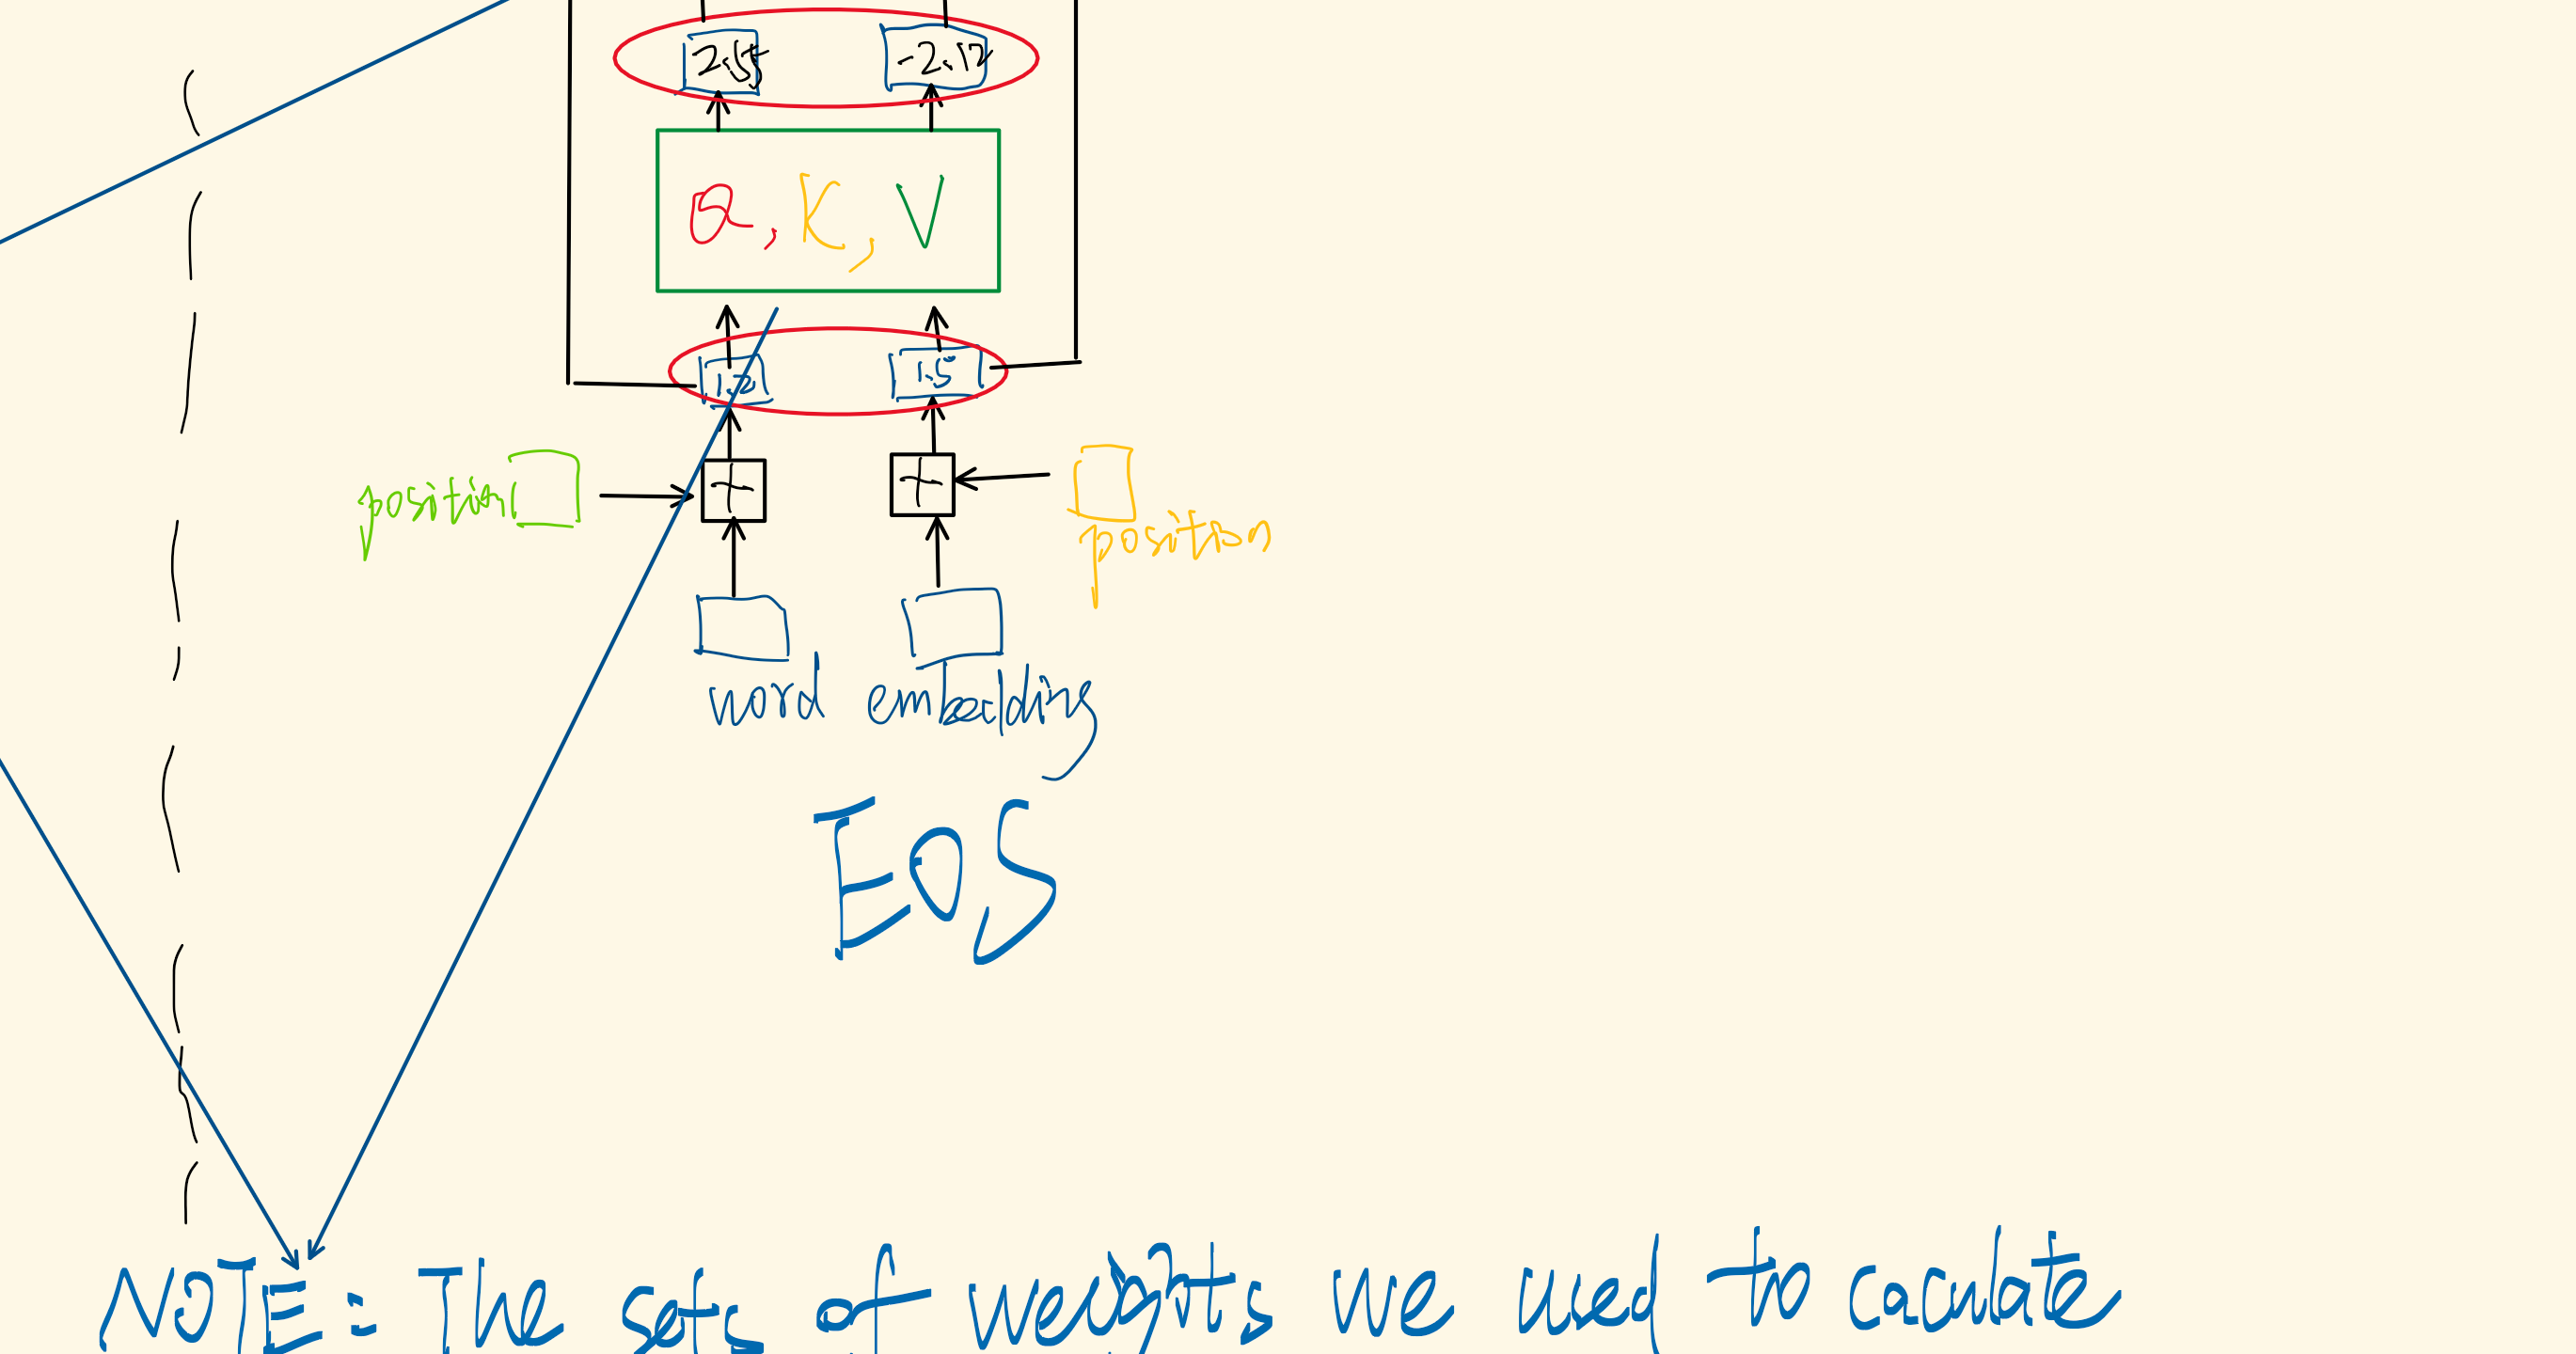 2.5 -2.12
Q, K, V
1.2 1.5
+ +
position
position
word embedding
EOS
NOTE: The sets of weights we used to caculate